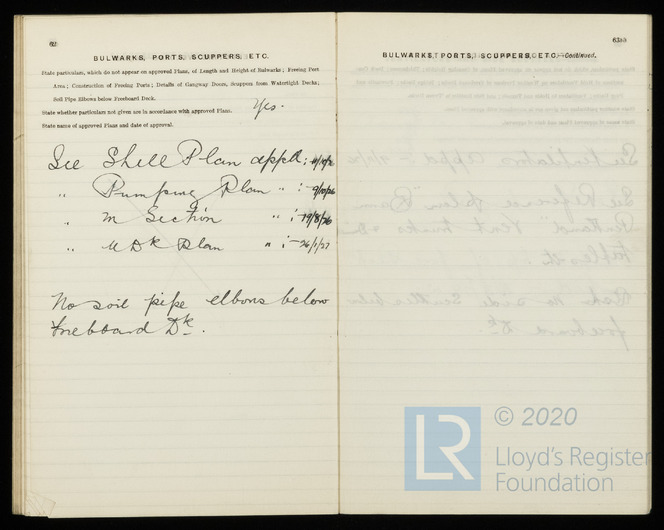 62
BULWARKS, PORTS, SCUPPERS, ETC.
State particulars, which do not appear on approved Plans, of Length and Height of Bulwarks; Freeing Port
Area; Construction of Freeing Ports; Details of Gangway Doors, Scuppers from Watertight Decks;
Soil Pipe Elbows below Freeboard Deck.
State whether particulars not given are in accordance with approved Plans. Yes.
State name of approved Plans and date of approval.
See Shell Plan appd:
" Pumping Plan " :-
" M Section " :- 19/8/26
" U Dk Plan " :- 26/1/27
No soil pipe elbows below
freeboard Dk.
BULWARKS, PORTS, SCUPPERS, ETC.—Continued.
LR
© 2020
Lloyd's Register
Foundation